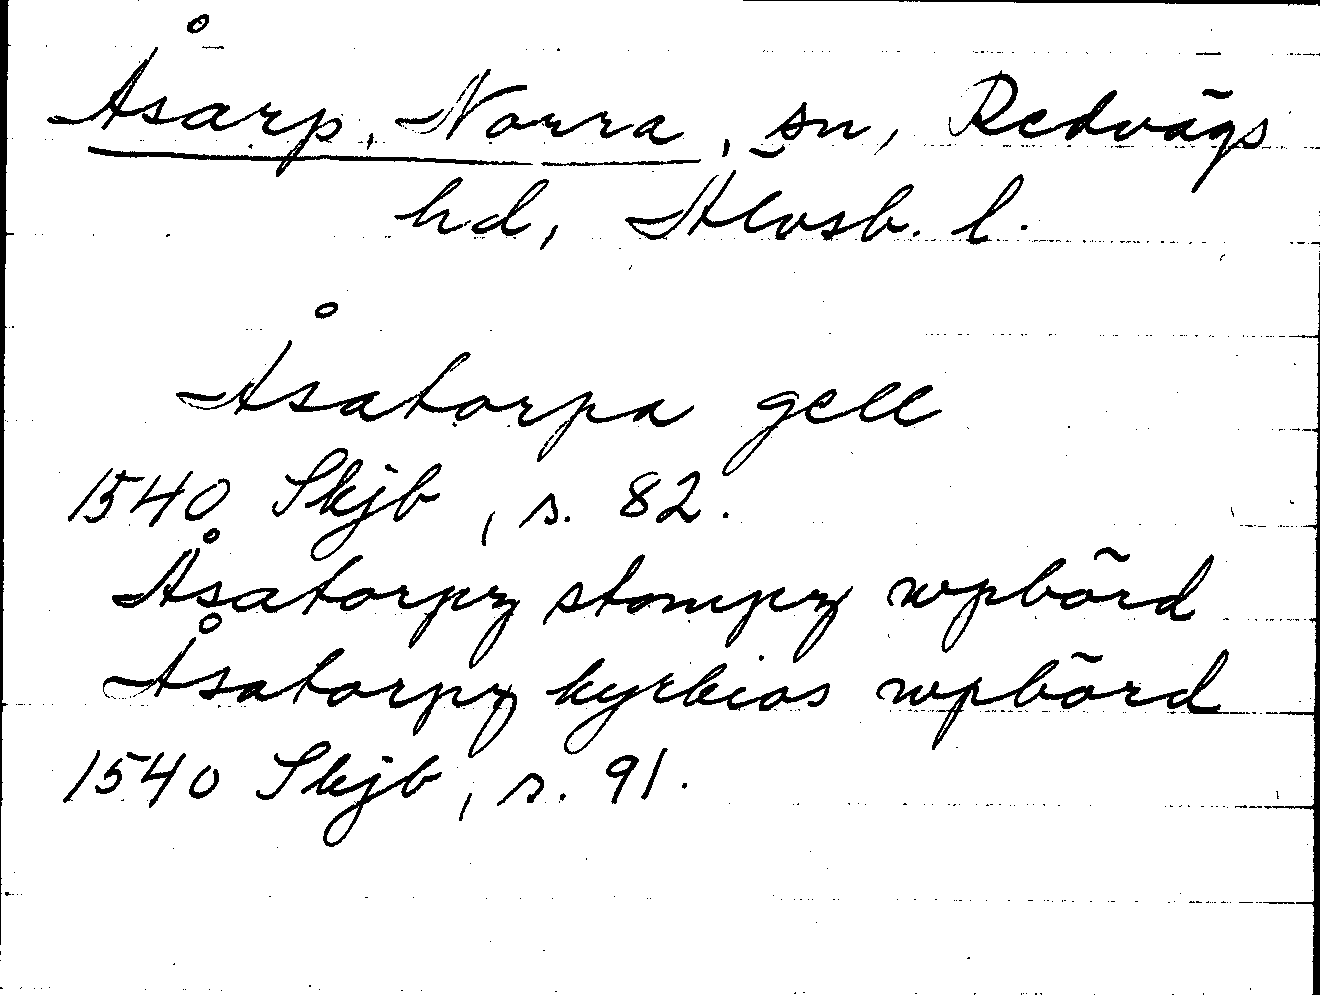 Åsarp, Norra, sn, Redvägs
hd, Älvsb. l.
Åsatorpa gell
1540 Skjb, s. 82.
Åsatorpz stompz wpbörd
Åsatorpz kyrkios wpbörd
1540 Skjb, s. 91.